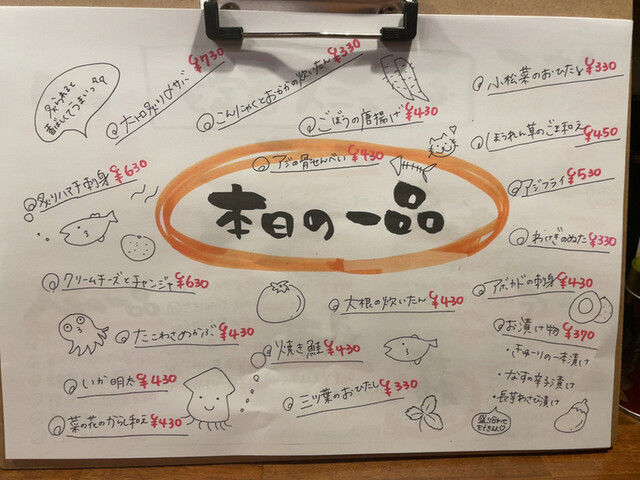 炙られると
香ばしくてうまいっタタ
大トロ炙り〆サバ ¥730
こんにゃくとおかかの炊いたん ¥330
ごぼうの唐揚げ ¥430
アジの骨せんべい ¥430
小松菜のおひたし ¥330
ほうれん草のごま和え ¥450
アジフライ ¥530
わけぎのぬた ¥330
炙りハマチ刺身 ¥630
本日の一品
クリームチーズとチャンジャ ¥630
たこわさめかぶ ¥430
いか明太 ¥430
菜の花のからし和え ¥430
大根の炊いたん ¥430
焼き鮭 ¥430
三ツ葉のおひたし ¥330
アボカドの刺身 ¥430
お漬け物 ¥370
・きゅーりの一本漬け
・なすの辛子漬け
・長芋わさび漬け
盛り合わせ
もできるよ♡